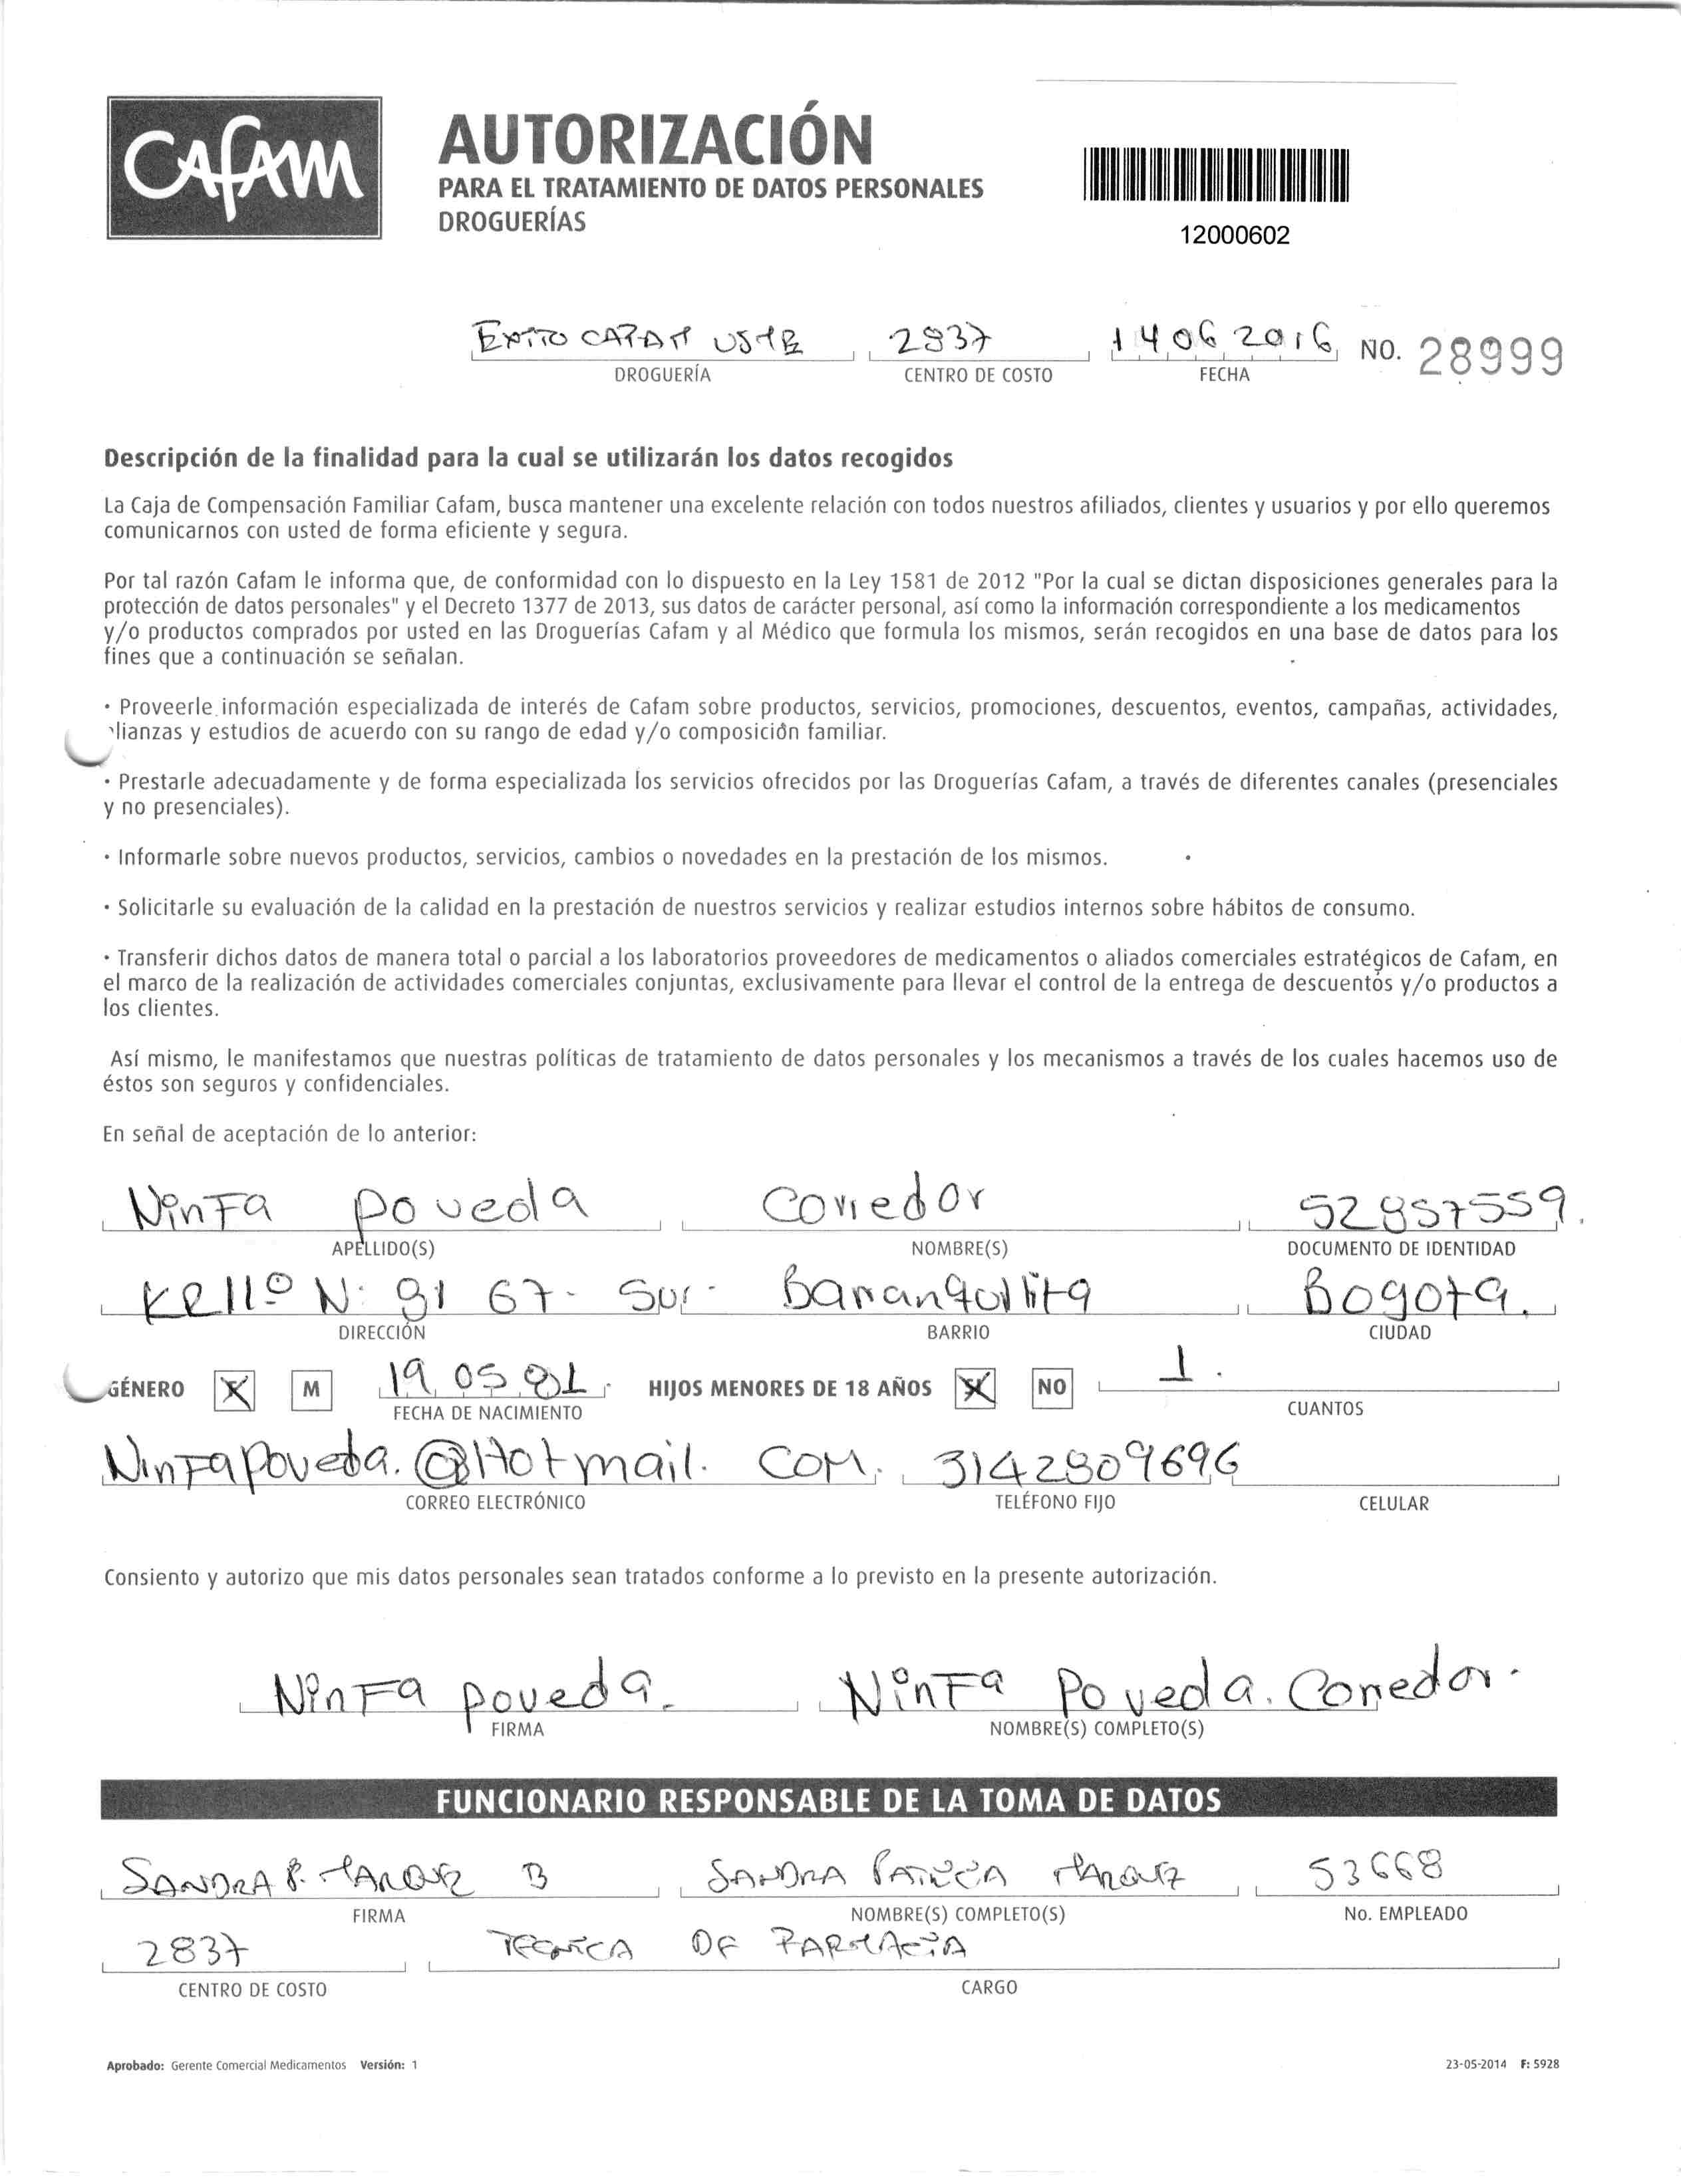 CAFAM
AUTORIZACIÓN
PARA EL TRATAMIENTO DE DATOS PERSONALES
DROGUERÍAS
12000602
EXITO CAFAM 2837 14 06 2016 NO. 28999
DROGUERÍA CENTRO DE COSTO FECHA
Descripción de la finalidad para la cual se utilizarán los datos recogidos
La Caja de Compensación Familiar Cafam, busca mantener una excelente relación con todos nuestros afiliados, clientes y usuarios y por ello queremos
comunicarnos con usted de forma eficiente y segura.
Por tal razón Cafam le informa que, de conformidad con lo dispuesto en la Ley 1581 de 2012 "Por la cual se dictan disposiciones generales para la
protección de datos personales" y el Decreto 1377 de 2013, sus datos de carácter personal, así como la información correspondiente a los medicamentos
y/o productos comprados por usted en las Droguerías Cafam y al Médico que formula los mismos, serán recogidos en una base de datos para los
fines que a continuación se señalan.
· Proveerle información especializada de interés de Cafam sobre productos, servicios, promociones, descuentos, eventos, campañas, actividades,
lianzas y estudios de acuerdo con su rango de edad y/o composición familiar.
· Prestarle adecuadamente y de forma especializada los servicios ofrecidos por las Droguerías Cafam, a través de diferentes canales (presenciales
y no presenciales).
· Informarle sobre nuevos productos, servicios, cambios o novedades en la prestación de los mismos.
· Solicitarle su evaluación de la calidad en la prestación de nuestros servicios y realizar estudios internos sobre hábitos de consumo.
· Transferir dichos datos de manera total o parcial a los laboratorios proveedores de medicamentos o aliados comerciales estratégicos de Cafam, en
el marco de la realización de actividades comerciales conjuntas, exclusivamente para llevar el control de la entrega de descuentos y/o productos a
los clientes.
Así mismo, le manifestamos que nuestras políticas de tratamiento de datos personales y los mecanismos a través de los cuales hacemos uso de
éstos son seguros y confidenciales.
En señal de aceptación de lo anterior:
Ninfa Poveda Corredor 52857559.
APELLIDO(S) NOMBRE(S) DOCUMENTO DE IDENTIDAD
N: 91 67- Sur- Barranquillita Bogota.
DIRECCIÓN BARRIO CIUDAD
GÉNERO X M 19 05 81 HIJOS MENORES DE 18 AÑOS X NO 1.
FECHA DE NACIMIENTO CUANTOS
NinFapoveda.@Hotmail. COM. 3142809696
CORREO ELECTRÓNICO TELÉFONO FIJO CELULAR
Consiento y autorizo que mis datos personales sean tratados conforme a lo previsto en la presente autorización.
NinFa poveda. NinFa Poveda. Corredor.
FIRMA NOMBRE(S) COMPLETO(S)
FUNCIONARIO RESPONSABLE DE LA TOMA DE DATOS
SANDRA P. MARQUEZ B SANDRA PATRICIA MARQUEZ 53668
FIRMA NOMBRE(S) COMPLETO(S) No. EMPLEADO
2837 TECNICA DE FARMACIA
CENTRO DE COSTO CARGO
Aprobado: Gerente Comercial Medicamentos Versión: 1 23-05-2014 F: 5928